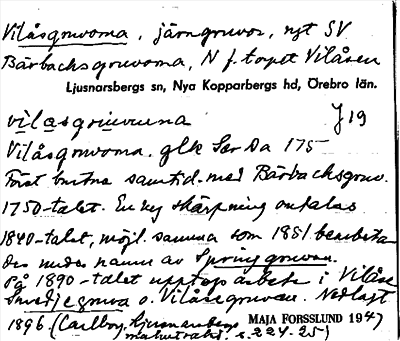 Vilåsgruvorna, järngruvor, ngt SV
Bärbacksgruvorna, N f. torpet Vilåsen
Ljusnarsbergs sn, Nya Kopparbergs hd, Örebro län.
vilasgruvuna J 19
Vilåsgruvorna, glk Ser Da 175
Först brutna samtid. med Bärbacksgruv.
1750-talet. En ny skärpning omtalas
1840-talet, möjl. samma som 1851 bearbetades
under namn av Springgruvan.
På 1890-talet upptogs arbete i Vilåse
Smedjegruva o. Vilåsegruvan. Nedlagt
1896. (Carlborg, Ljusnarsbergs MAJA FORSSLUND 1947
malmtrakt. s. 224-25)